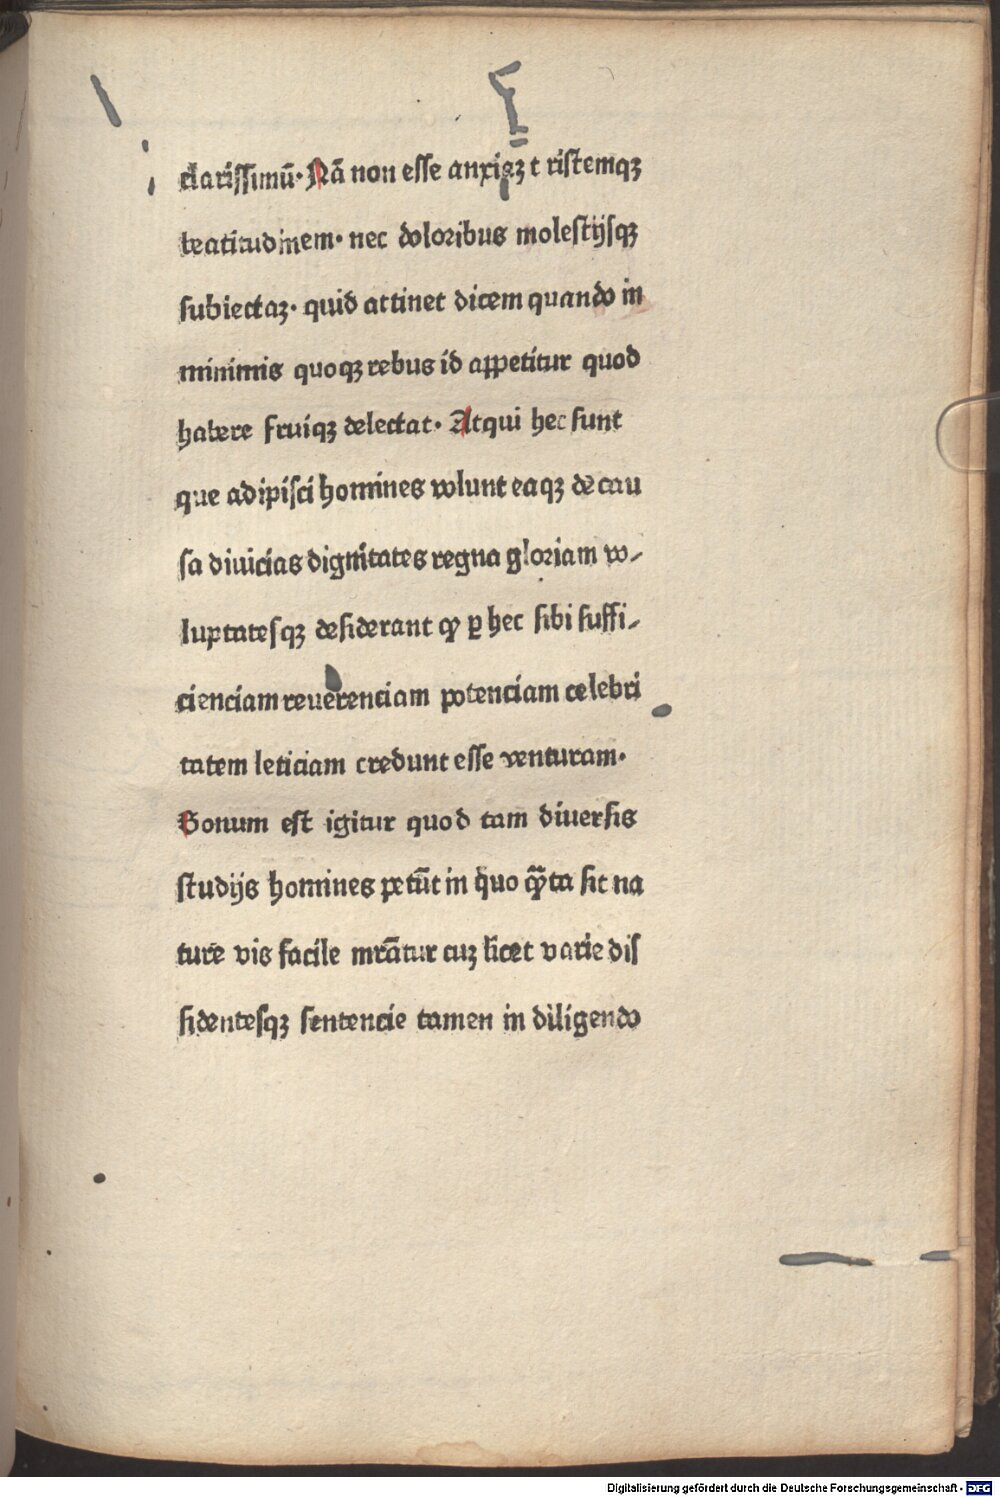 clarissimū. Nā non esse anxiaꝫ t ristemqꝫ
beatitudinem. nec doloribus molestijsqꝫ
subiectaꝫ. quid attinet dicem quando in
minimis quoqꝫ rebus id appetitur quod
habere fruiqꝫ delectat. Atqui hec sunt
que adipisci homines volunt eaqꝫ de cau
sa diuicias dignitates regna gloriam vo⸗
luptatesqꝫ desiderant ꝙ ꝑ hec sibi suffi⸗
cienciam reuerenciam potenciam celebri
tatem leticiam credunt esse venturam.
Bonum est igitur quod tam diuersis
studijs homines petūt in quo q̄ta sit na
ture vis facile mrātur cuꝫ licet varie dis
sidentesqꝫ sentencie tamen in diligendo
Digitalisierung gefördert durch die Deutsche Forschungsgemeinschaft - DFG